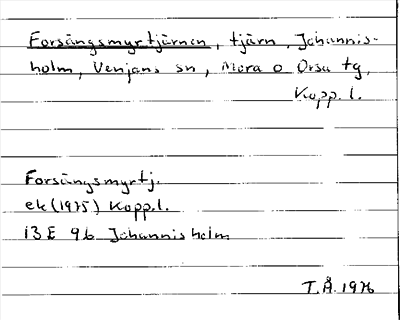 Forsängsmyrtjärnen, tjärn, Johannis-
holm, Venjans sn, Mora o Orsa tg,
Kopp. l.
Forsängsmyrtj.
ek (1975) Kopp.l.
13 E 9b Johannisholm
T.Å. 1976